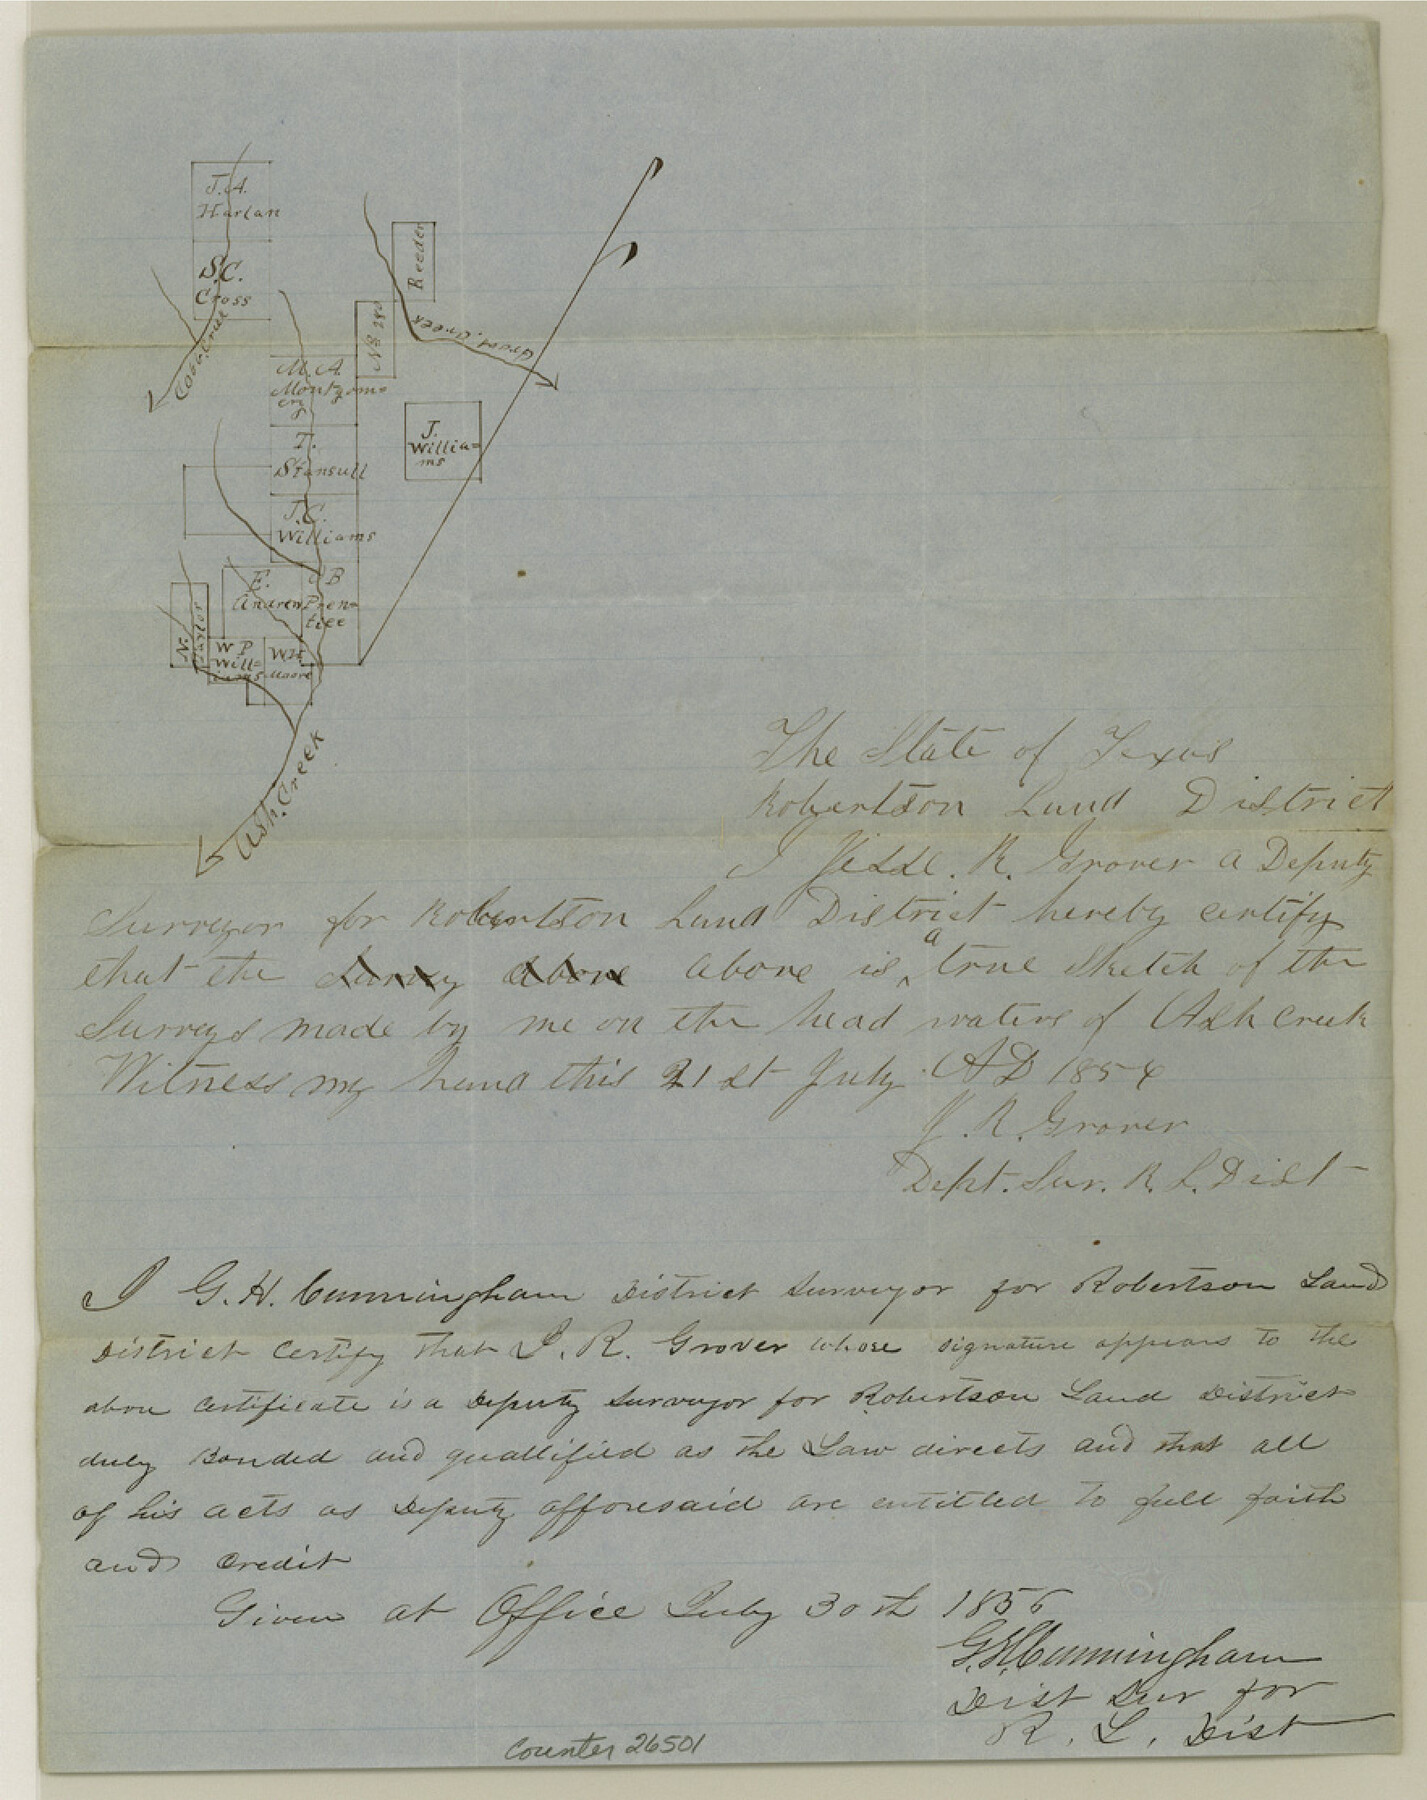 J. A.
Harlan
S. C.
Cross
Cobb. Creek
Reeder
No 280
Creek
M. A.
Montgom=
ery
J.
Willia=
ms
T.
Stansull
J. C.
Williams
E.
Andrew
B
Pren=
tice
N.
W P
Will=
iams
W H
Moore
Ash. Creek
The State of Texas
Robertson Land District
I Jesse. R. Grover a Deputy
Surveyor for Robertson Land District hereby certify
that the Survey above above is a true Sketch of the
Surveys made by me on the head waters of Ash Creek
Witness my hand this 21st July. AD 1856
J. R. Grover
Dept. Sur. R. L. Dist
I G. H. Cunningham District Surveyor for Robertson Land
District Certify that J. R. Grover whose signature appears to the
above Certificate is a Deputy Surveyor for Robertson Land District
duly Bonded and quallified as the Law directs and that all
of his acts as Deputy afforesaid are entitled to full faith
and Credit
Given at Office July 30th 1856
G. H. Cunningham
Dist Sur for
R. L. Dist
Counter 26501